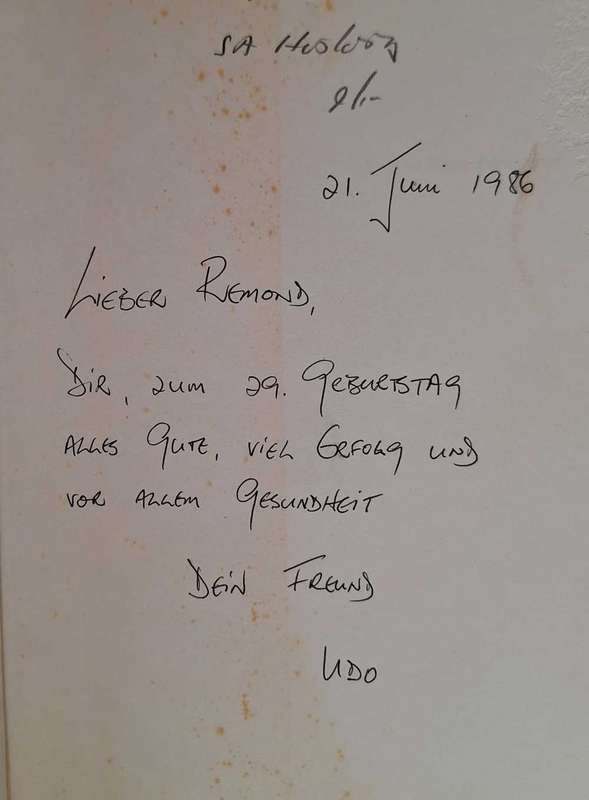 SA
9/-
21. Juni 1986
LIEBER REMOND,
DIR, ZUM 29. GEBURTSTAG
ALLES GUTE, VIEL ERFOLG UND
VOR ALLEM GESUNDHEIT
DEIN FREUND
UDO